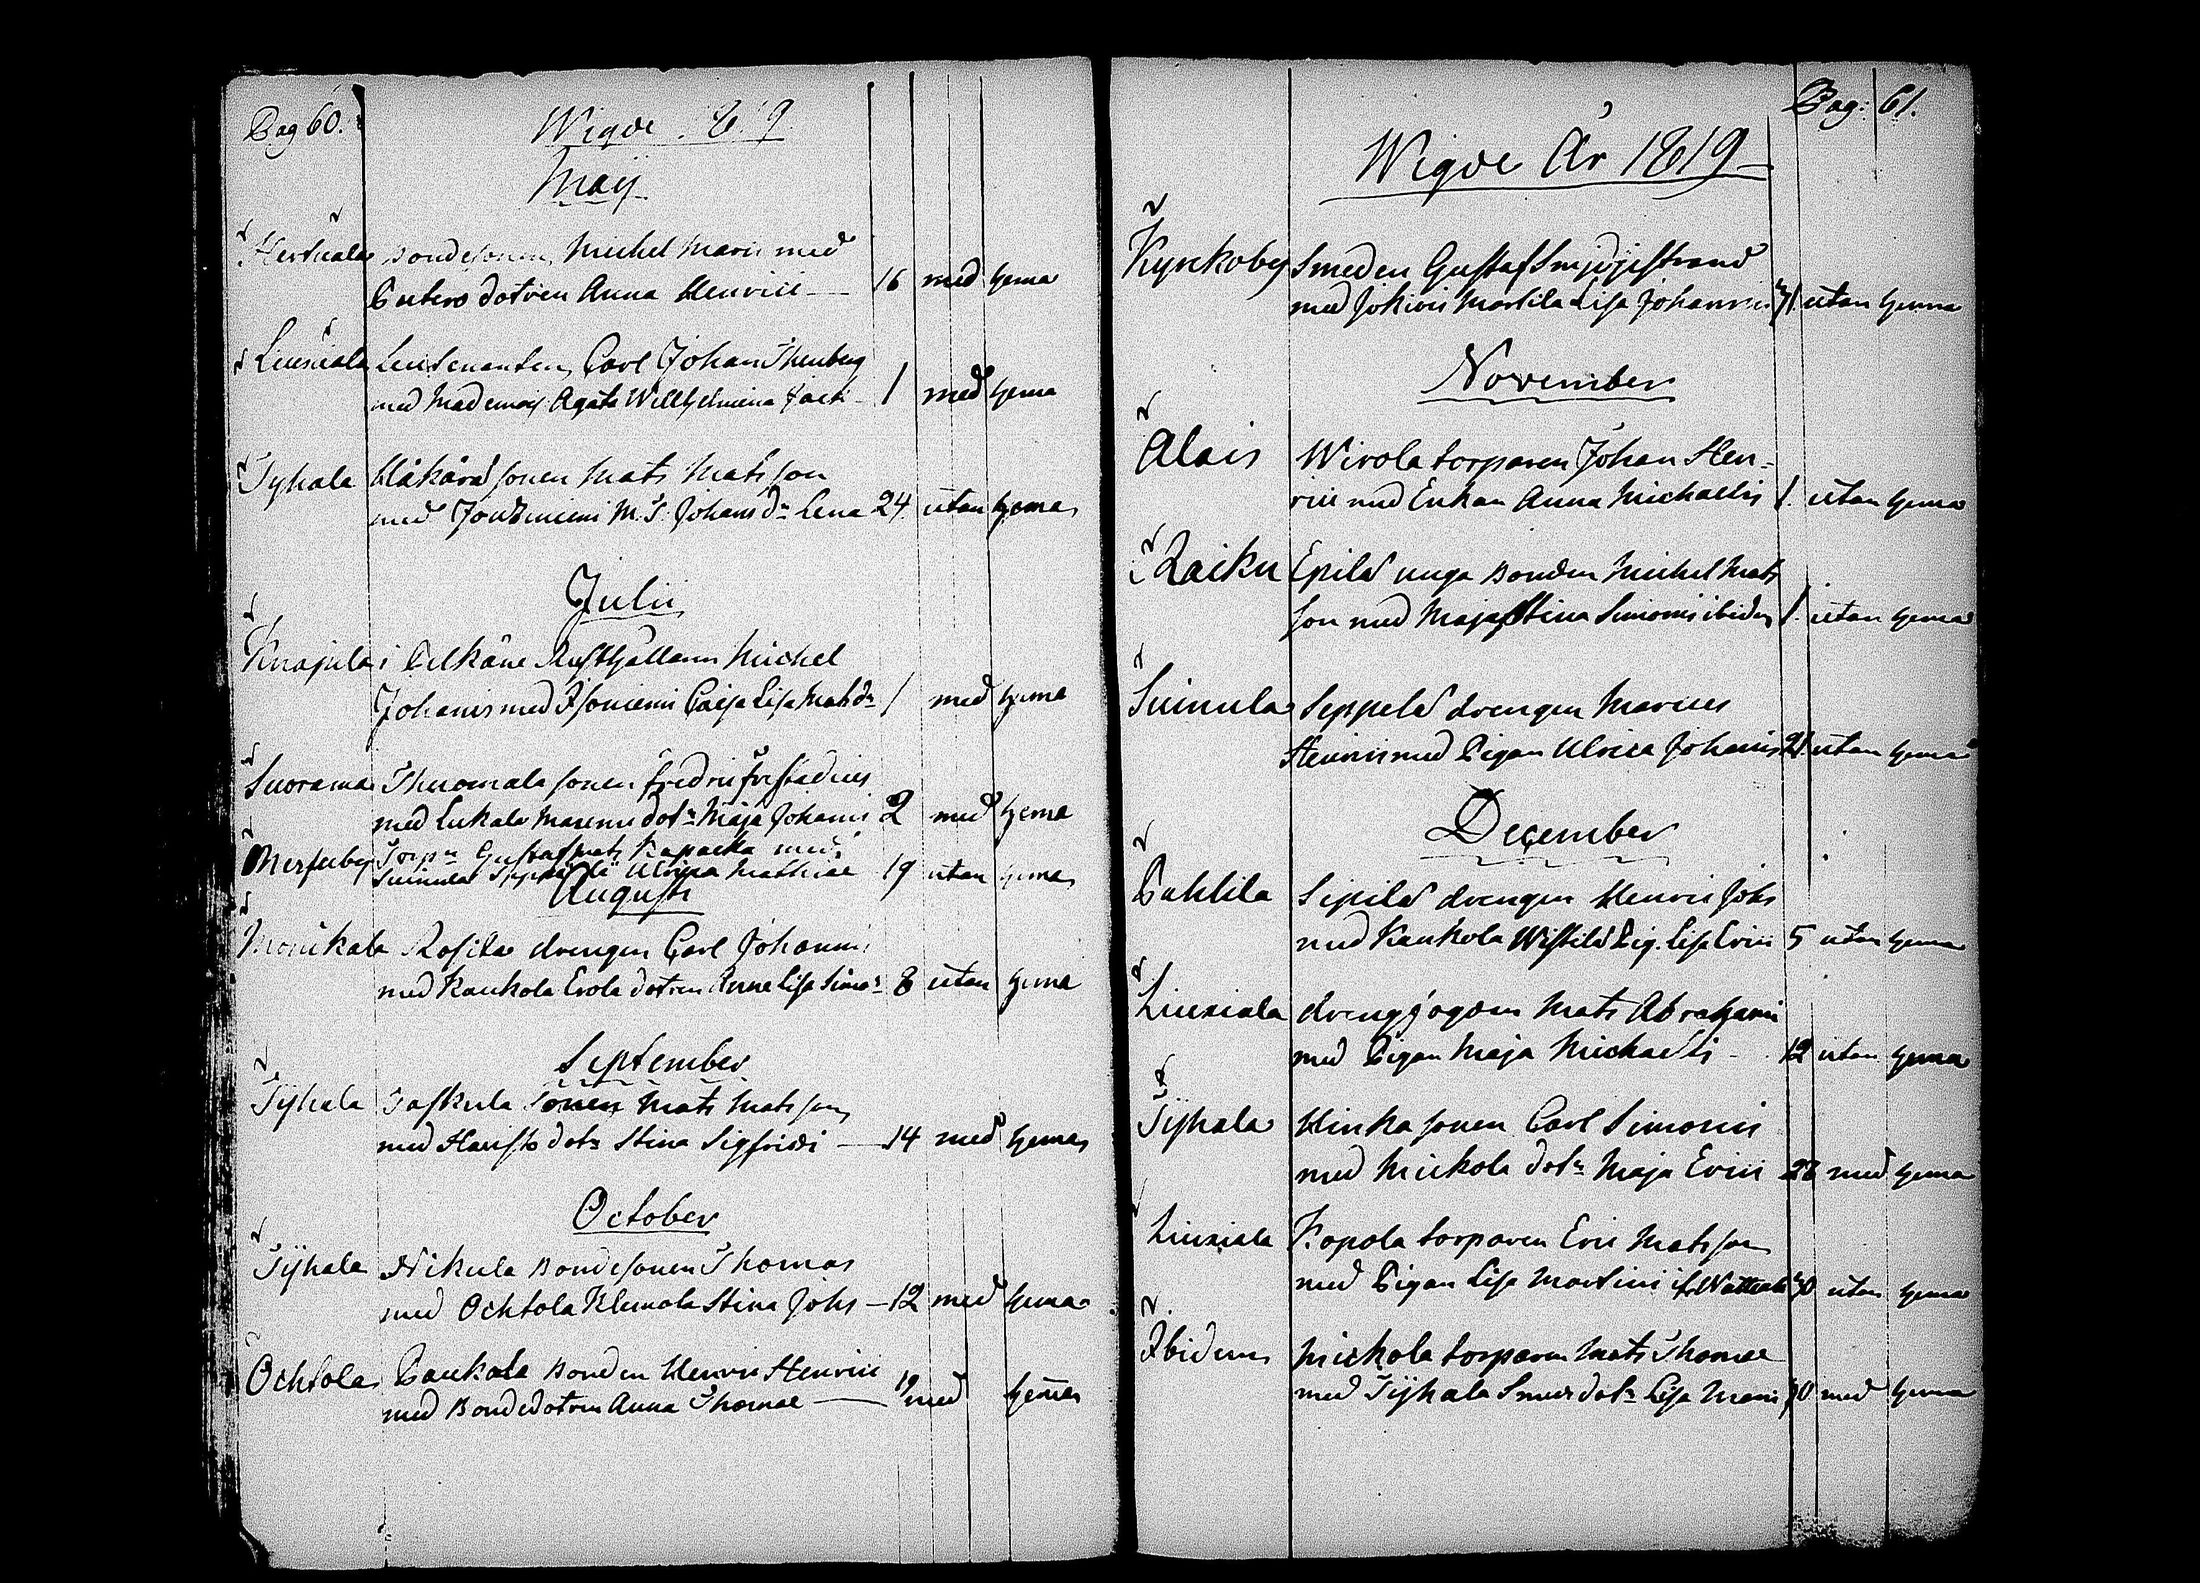 Pag 60.
Wigde 1819
Maij
Hertuala Bondesonen Michel Marci med
Putero dotren Anna Henrici 16 med hema
Liuxiala Leutenanten Carl Johan Thunberg
med Mademois. Agata Willhelmina Jack 1 med hema
Tyhala Håkård sonen Mats Matsson
med M. T. Johans Dr Lena 24 utan hema
Julii
i Pelkäne Rusthållaren Michel
Johannis med Isoniemi Caisa Lisa Matsdr 1 med hema
Suorama Thuomala sonen Fredric
med Lukala dotr Maja Johanis 2 med hema
Torpn Gustaf Mats med
Suinula Seppälä Ulrica Mathiæ 19 utan hema
Augusti
Monikala Rosila drengen Carl Johannis
med Kaukola Erola dotren Anna Lisa Simos 8 utan hema
September
Tijhala Taskula Sonen Mats Matsson
med dotr Stina Sigfridi 14 med hema
October
Tijhala Nikula Bondesonen Thomas
med Ochtola Klemola Stina Johs 12 med hema
Ochtola Paukola Bonden Henric Henrici
med Bondedotren Anna Thomæ 19 med hema
Pag: 61.
Wigde År 1819
Kyrckoby Smeden Gustaf
med Jokivis Marttila Lisa Johannis 31 utan hema
November
Alais Wirola torparen Johan Hen-
rici med Enkan Anna Michaelis 1. utan hema
Raiku Epilä unga Bonden Michel Mats
son med Maja Stina Simonis ibidem 1. utan hema
Suinula Seppelä drengen Marcus
Henrici med Pigan Ulrica Johanis 21 utan hema
December
Pahlila Sipilä drengen Henric Johs
med Kaukola Wistilä Pig. Lisa Erici 5 utan hema
Liuxiala drengfogden Mats Abrahami
med Pigan Maja Michaelis 12 utan hema
Tijhala Hinka sonen Carl Simonis
med Mickola dotr Maja Erici 28 med hema
Liuxiala Kopola torparen Eric Matsson
med Pigan Lisa Martini 30 utan hema
Ibidem Mickola torparen Mats Thomæ
med Tijhala dotr Lisa Marci 30 med hema